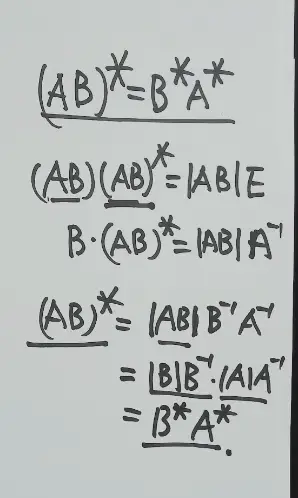 (AB)*=B*A*
(AB)(AB)*=|AB|E
B·(AB)*=|AB|A⁻¹
(AB)*=|AB|B⁻¹A⁻¹
=|B|B⁻¹·|A|A⁻¹
=B*A*.